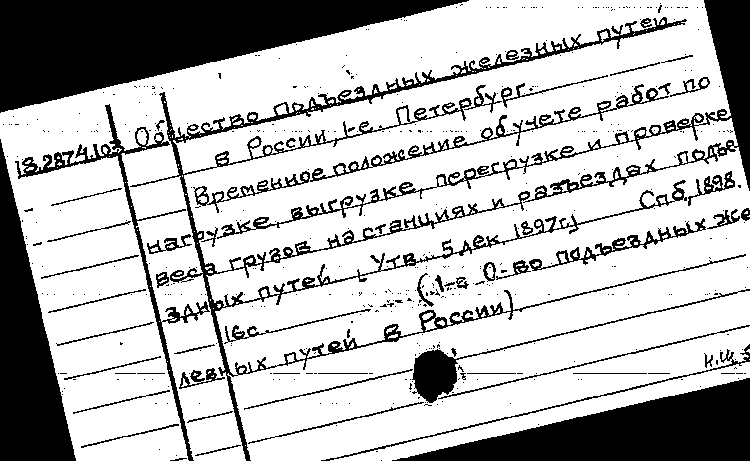 18.2874.103 Общество подъездных железных путей
в России, 1-е. Петербург.
Временное положение об учете работ по
нагрузке, выгрузке, перегрузке и проверке
веса грузов на станциях и разъездах подъе-
здных путей. [Утв. 5 дек. 1897г.] Спб, 1898.
16с. (1-е О-во подъездных же
лезных путей в России).